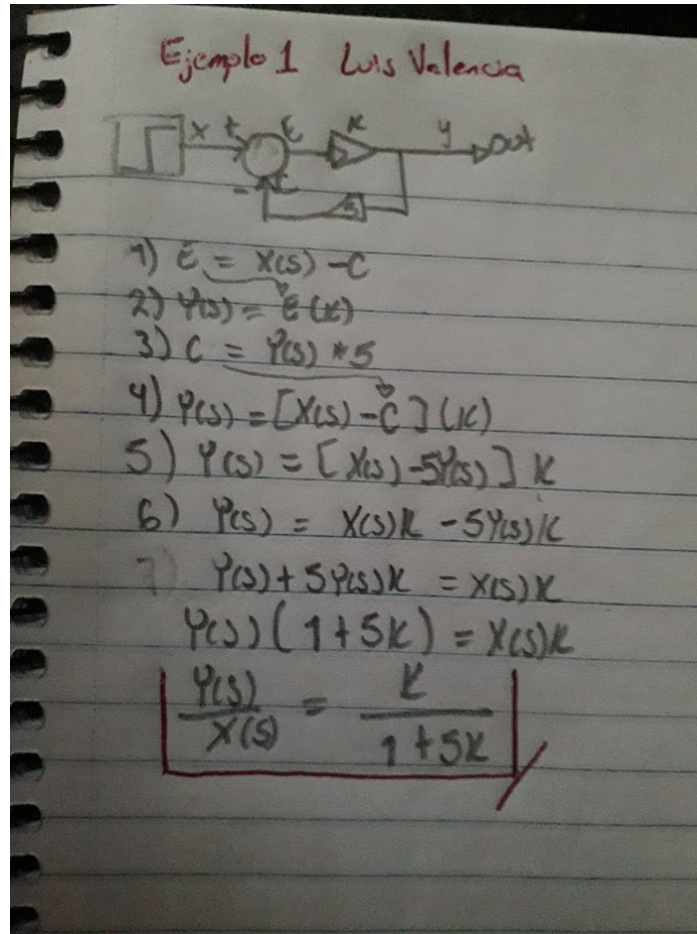 Ejemplo 1 Luis Valencia
X + E K y out
- C 5
1) E = X(s) - C
2) Y(s) = E(K)
3) C = Y(s) * 5
4) Y(s) = [X(s) - C](K)
5) Y(s) = [X(s) - 5Y(s)] K
6) Y(s) = X(s)K - 5Y(s)K
7) Y(s) + 5Y(s)K = X(s)K
Y(s)(1 + 5K) = X(s)K
Y(s)/X(s) = K/(1 + 5K)